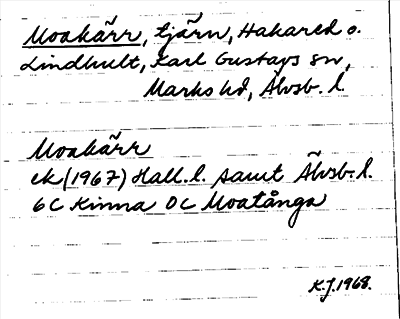 Moakärr, tjärn, Hakared o.
Lindhult, Karl Gustavs sn,
Marks hd, Älvsb. l.
Moakärr
ek (1967) Hall. l. samt Älvsb. l.
6C Kinna 0C Moatånga
K.J. 1968.